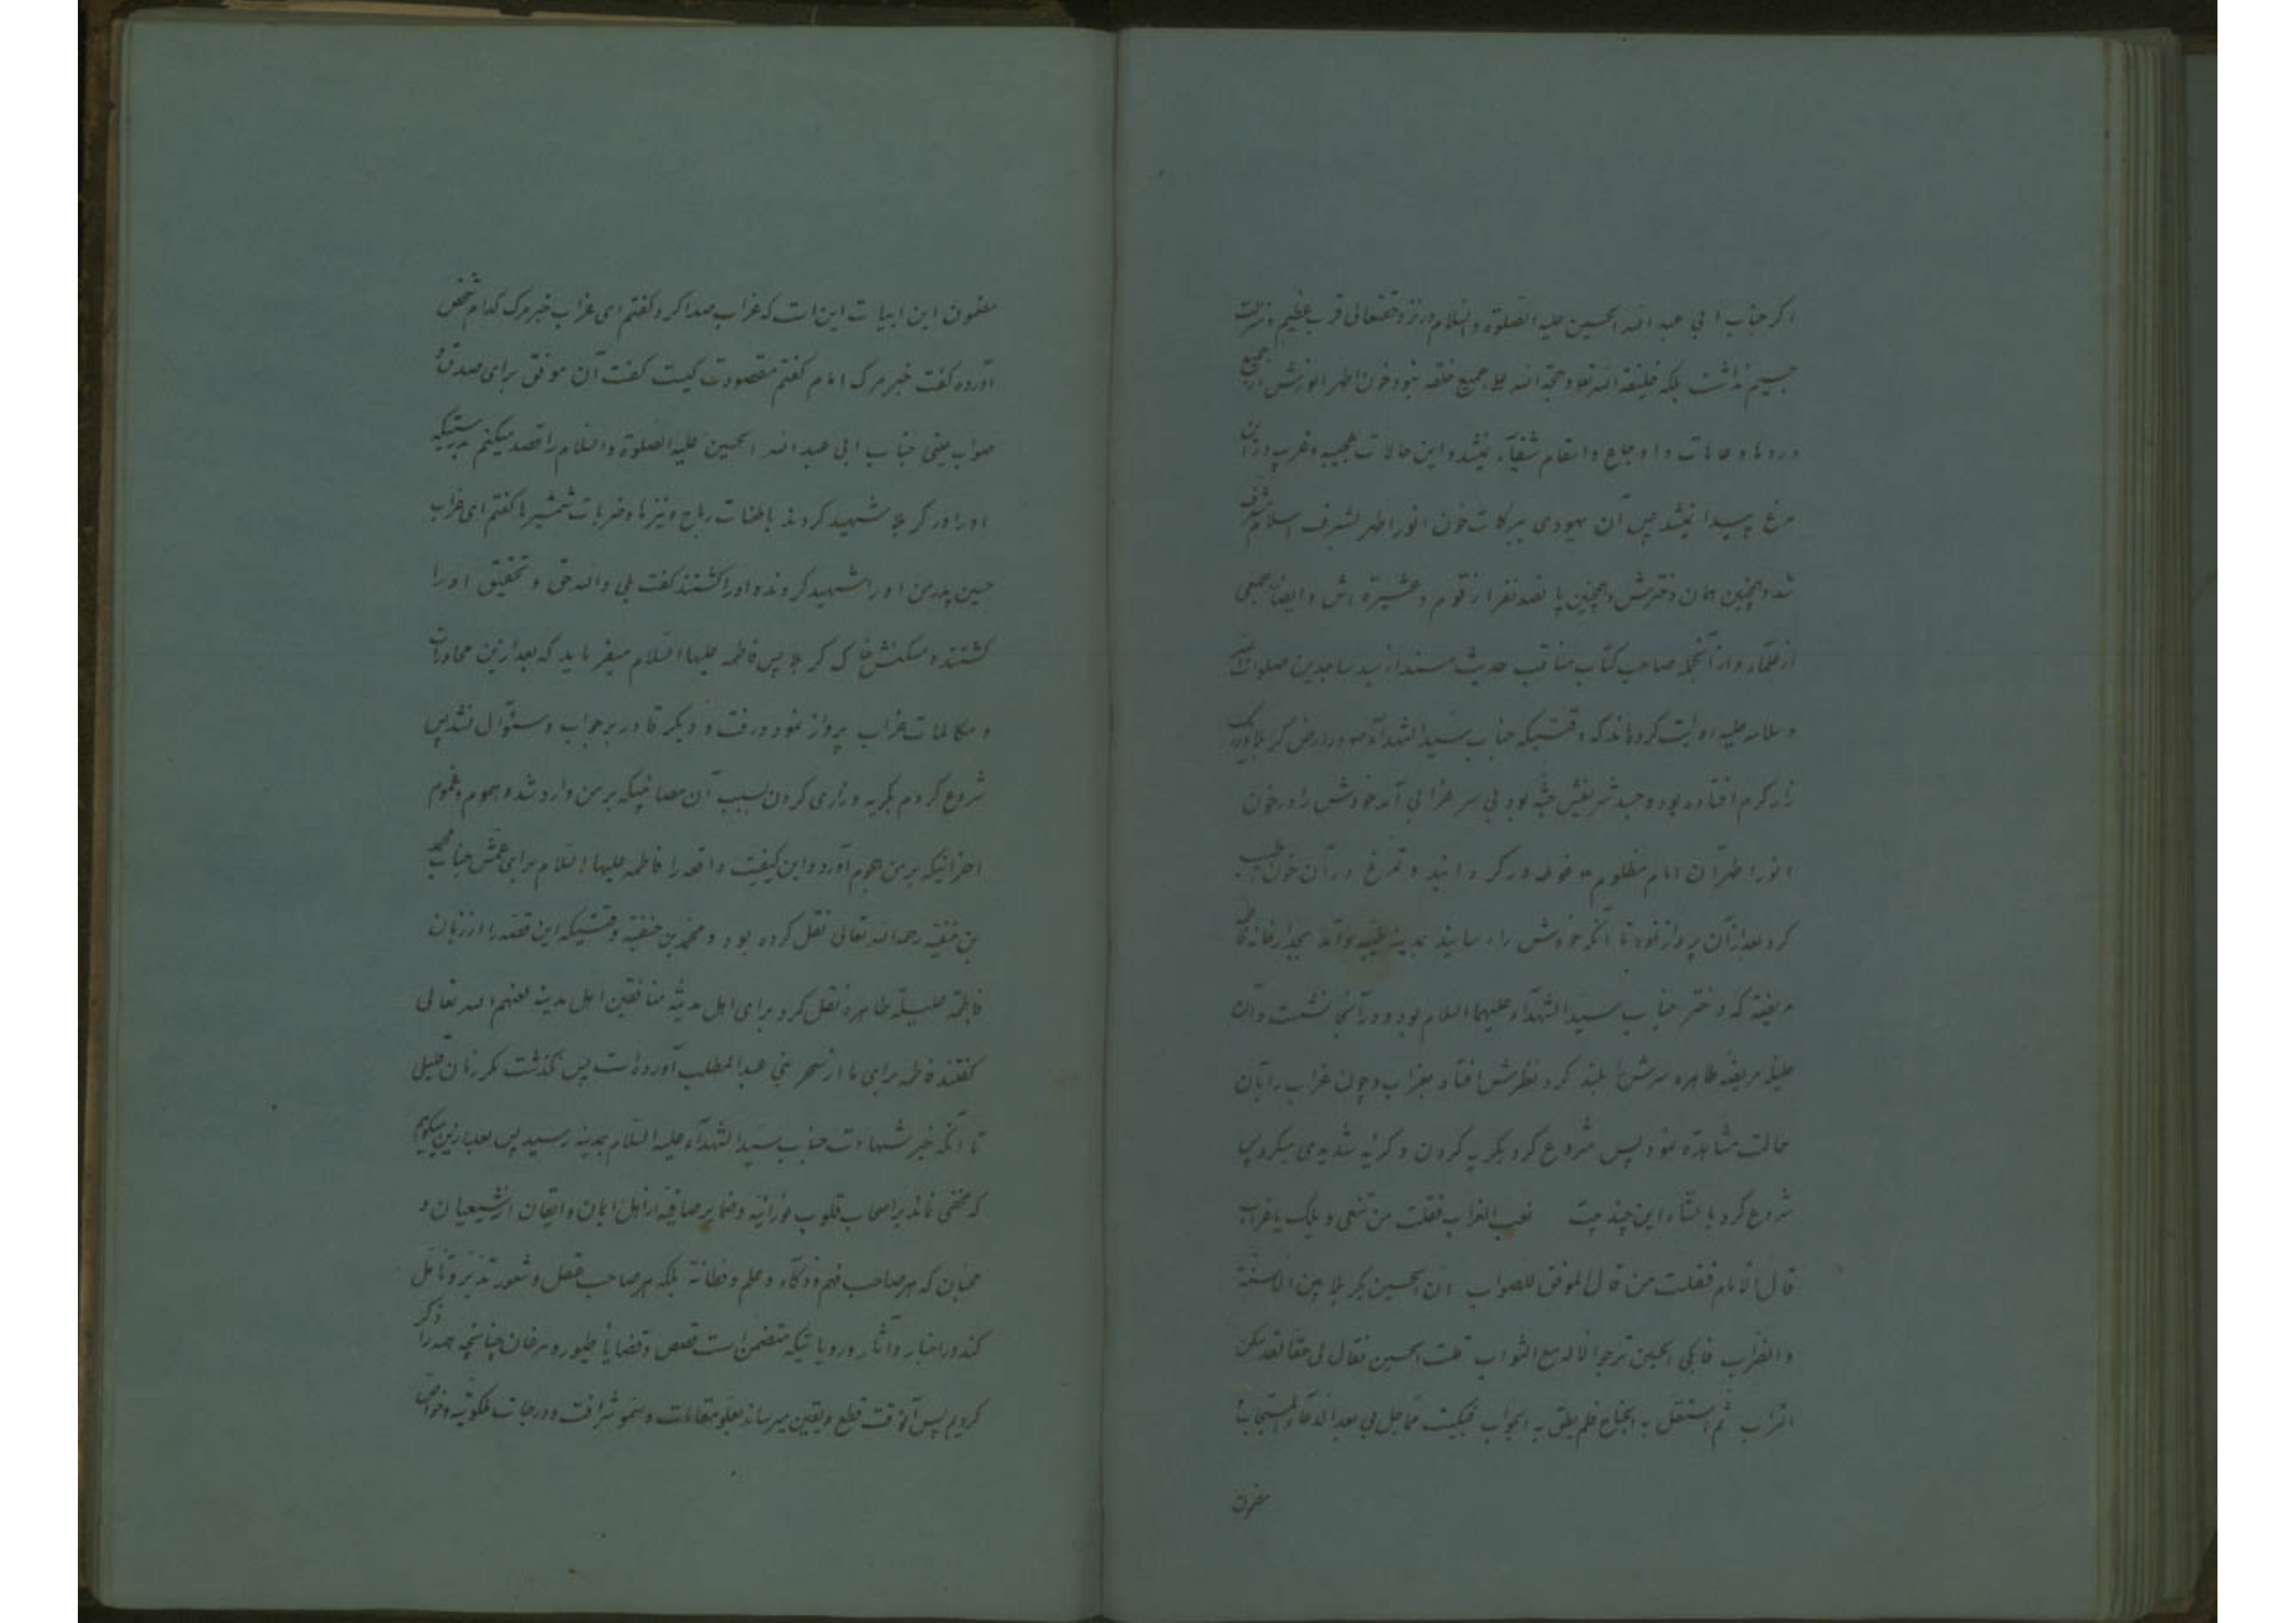 اکر جناب ابی عبد الله الحسین علیه الصلوة والسلام در نزد حقتعالی قرب عظیم و منزلت
جسیم نداشت بلکه خلیفة الله تعا و حجة الله علا جمیع خلقه نبود خون اطهر انورش از جمیع
دردها و عاهات و اوجاع و اسقام شفآء نمیشد و این حالات عجیبه و غریبه در آن
مرغ پیدا نمیشد پس آن یهودی ببرکات خون انور اطهر بشرف اسلام مشرف
شد و همچنین همان دخترش و همچنین پانصد نفر از قوم و عشیرة اش و ایضا جمعی
از علمآء و از آنجمله صاحب کتاب مناقب حدیث مسند از سید ساجدین صلوات الله
و سلامه علیه روایت کرده‌اند که وقتیکه جناب سید الشهدآء در ارض کربلا در ریک
زار کرم افتاده بود و جسد شریفش جثه بود بی سر غرابی آمد خودش را در خون
انور اطهر آن امام مظلوم غوطه ور کردانید و تمرغ در آن خون طیب
کرد بعد از آن پرواز نمود تا آنکه خودش را رسانید بمدینه طیبه و آمد بجدار خانه فاطمه
مریضه که دختر جناب سید الشهدآء علیهما السلام بود و در آنجا نشست و آن
علیله مریضه طاهره سرش را بلند کرد نظرش افتاد بغراب و چون غراب را بآن
حالت مشاهدة نمود پس شروع کرد بکریه کردن و کریه شدیدی میکرد پس
شروع کرد بانشآء این چند بیت نعب الغراب فقلت من تنعی ویلک یا غراب
قال الامام فقلت من قال الموفق للصواب ان الحسین بکربلا بین الاسنة
والضراب فابکی الحسین ترجو الاله مع الثواب قلت الحسین فقال لی حقا لقد سکن
التراب ثم استقل به الجناح فلم یطق به الجواب فبکیت مما حل بی بعد الدعآء المستجاب و
مضمون
مضمون این ابیات این است که غراب صدا کرد کفتم ای غراب خبر مرک کدام شخص
آورده کفت خبر مرک امام کفتم مقصودت کیست کفت آن موفق برای صدق و
صواب یعنی جناب ابی عبد الله الحسین علیه الصلوة والسلام را قصد میکنم بدرستیکه
او را در کربلا شهید کردند با طعنات رماح و نیزها و ضربات شمشیرها کفتم ای غراب
حسین پدر من او را شهید کردند و او را کشتند کفت بلی والله حق و تحقیق او را
کشتند و مسکنش خاک کربلا پس فاطمه علیها السلام میفرماید که بعد ازین محاورات
و مکالمات غراب پرواز نمود و رفت و دیکر قادر بر جواب و سئوال نشد پس
شروع کردم بکریه و زاری کردن بسبب آن مصائبیکه بر من وارد شد و هموم و غموم
احزانیکه بر من هجوم آورد و این کیفیت واقعه را فاطمه علیها السلام برای عمش جناب محمد
بن حنفیه رحمه الله تعالی نقل کرده بود و محمد بن حنفیة وقتیکه این قصه را از زبان
فاطمة علیلة طاهره نقل کرد برای اهل مدینة منافقین اهل مدینه لعنهم الله تعالی
کفتند فاطمه برای ما از سحر بنی عبد المطلب آورده است پس نکذشت مکر زمان قلیلی
تا آنکه خبر شهادت جناب سید الشهدآء علیه السلام بمدینه رسید پس بعد ازین میکویم
که مخفی نماند بر اصحاب قلوب نورانیه و ضمایر صافیه از اهل ایمان و ایقان از شیعیان و
محبان که هر صاحب فهم و ذکآء و علم و فطانة بلکه هر صاحب عقل و شعور تدبر و تأمل
کند در اخبار و آثار و رویایتیکه متضمن است قصص و قضایا طیور و مرغان چنانچه همه را ذکر
کردیم پس آنوقت قطع و یقین میرساند بعلو مقامات و سمو شرافت و درجات ملکوتیه و خواص